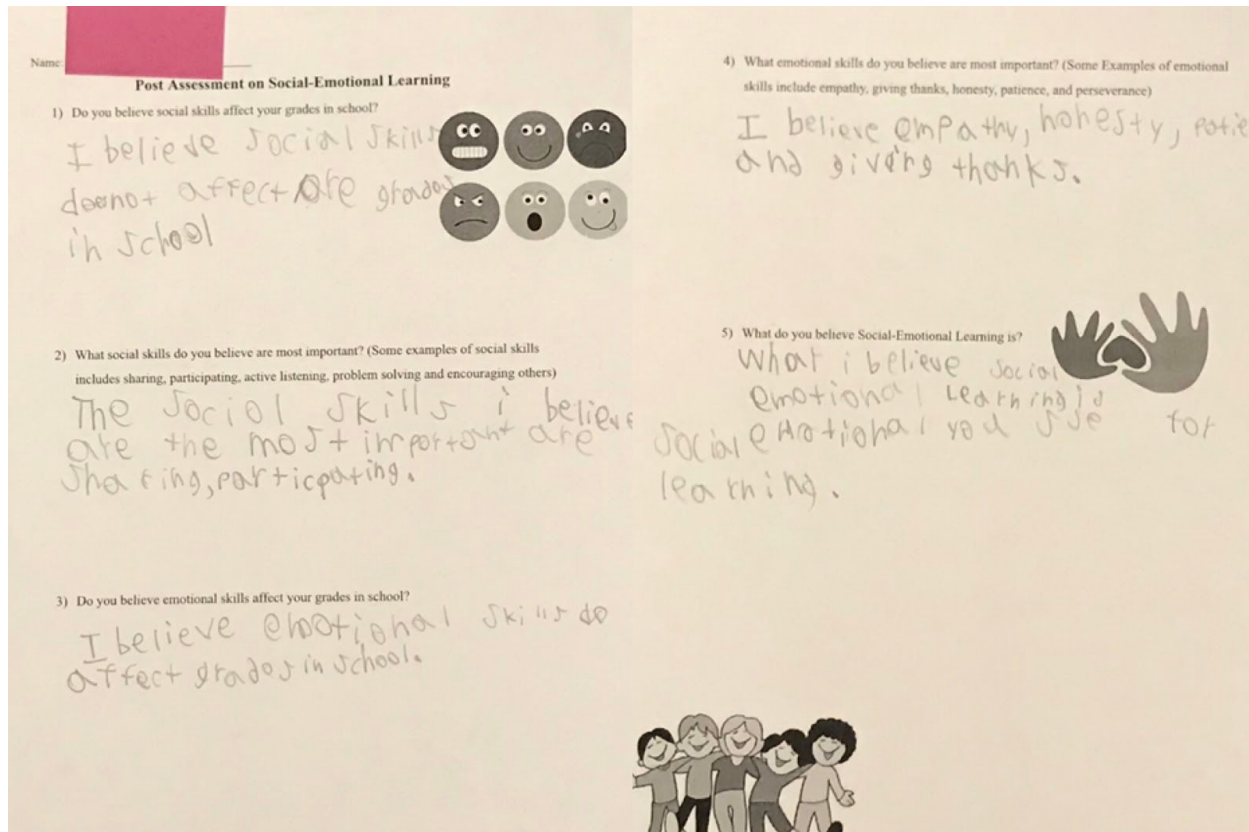 Name:
Post Assessment on Social-Emotional Learning
1) Do you believe social skills affect your grades in school?
I believe social skills
doenot affect are grades
in school
2) What social skills do you believe are most important? (Some examples of social skills
includes sharing, participating, active listening, problem solving and encouraging others)
The social skills i believe
are the most important are
sharing, particpating.
3) Do you believe emotional skills affect your grades in school?
I believe emotional skills do
affect grades in school.
4) What emotional skills do you believe are most important? (Some Examples of emotional
skills include empathy, giving thanks, honesty, patience, and perseverance)
I believe empathy, honesty, patie
and giving thanks.
5) What do you believe Social-Emotional Learning is?
What i believe social
emotional learning is
social emotional you use for
learning.